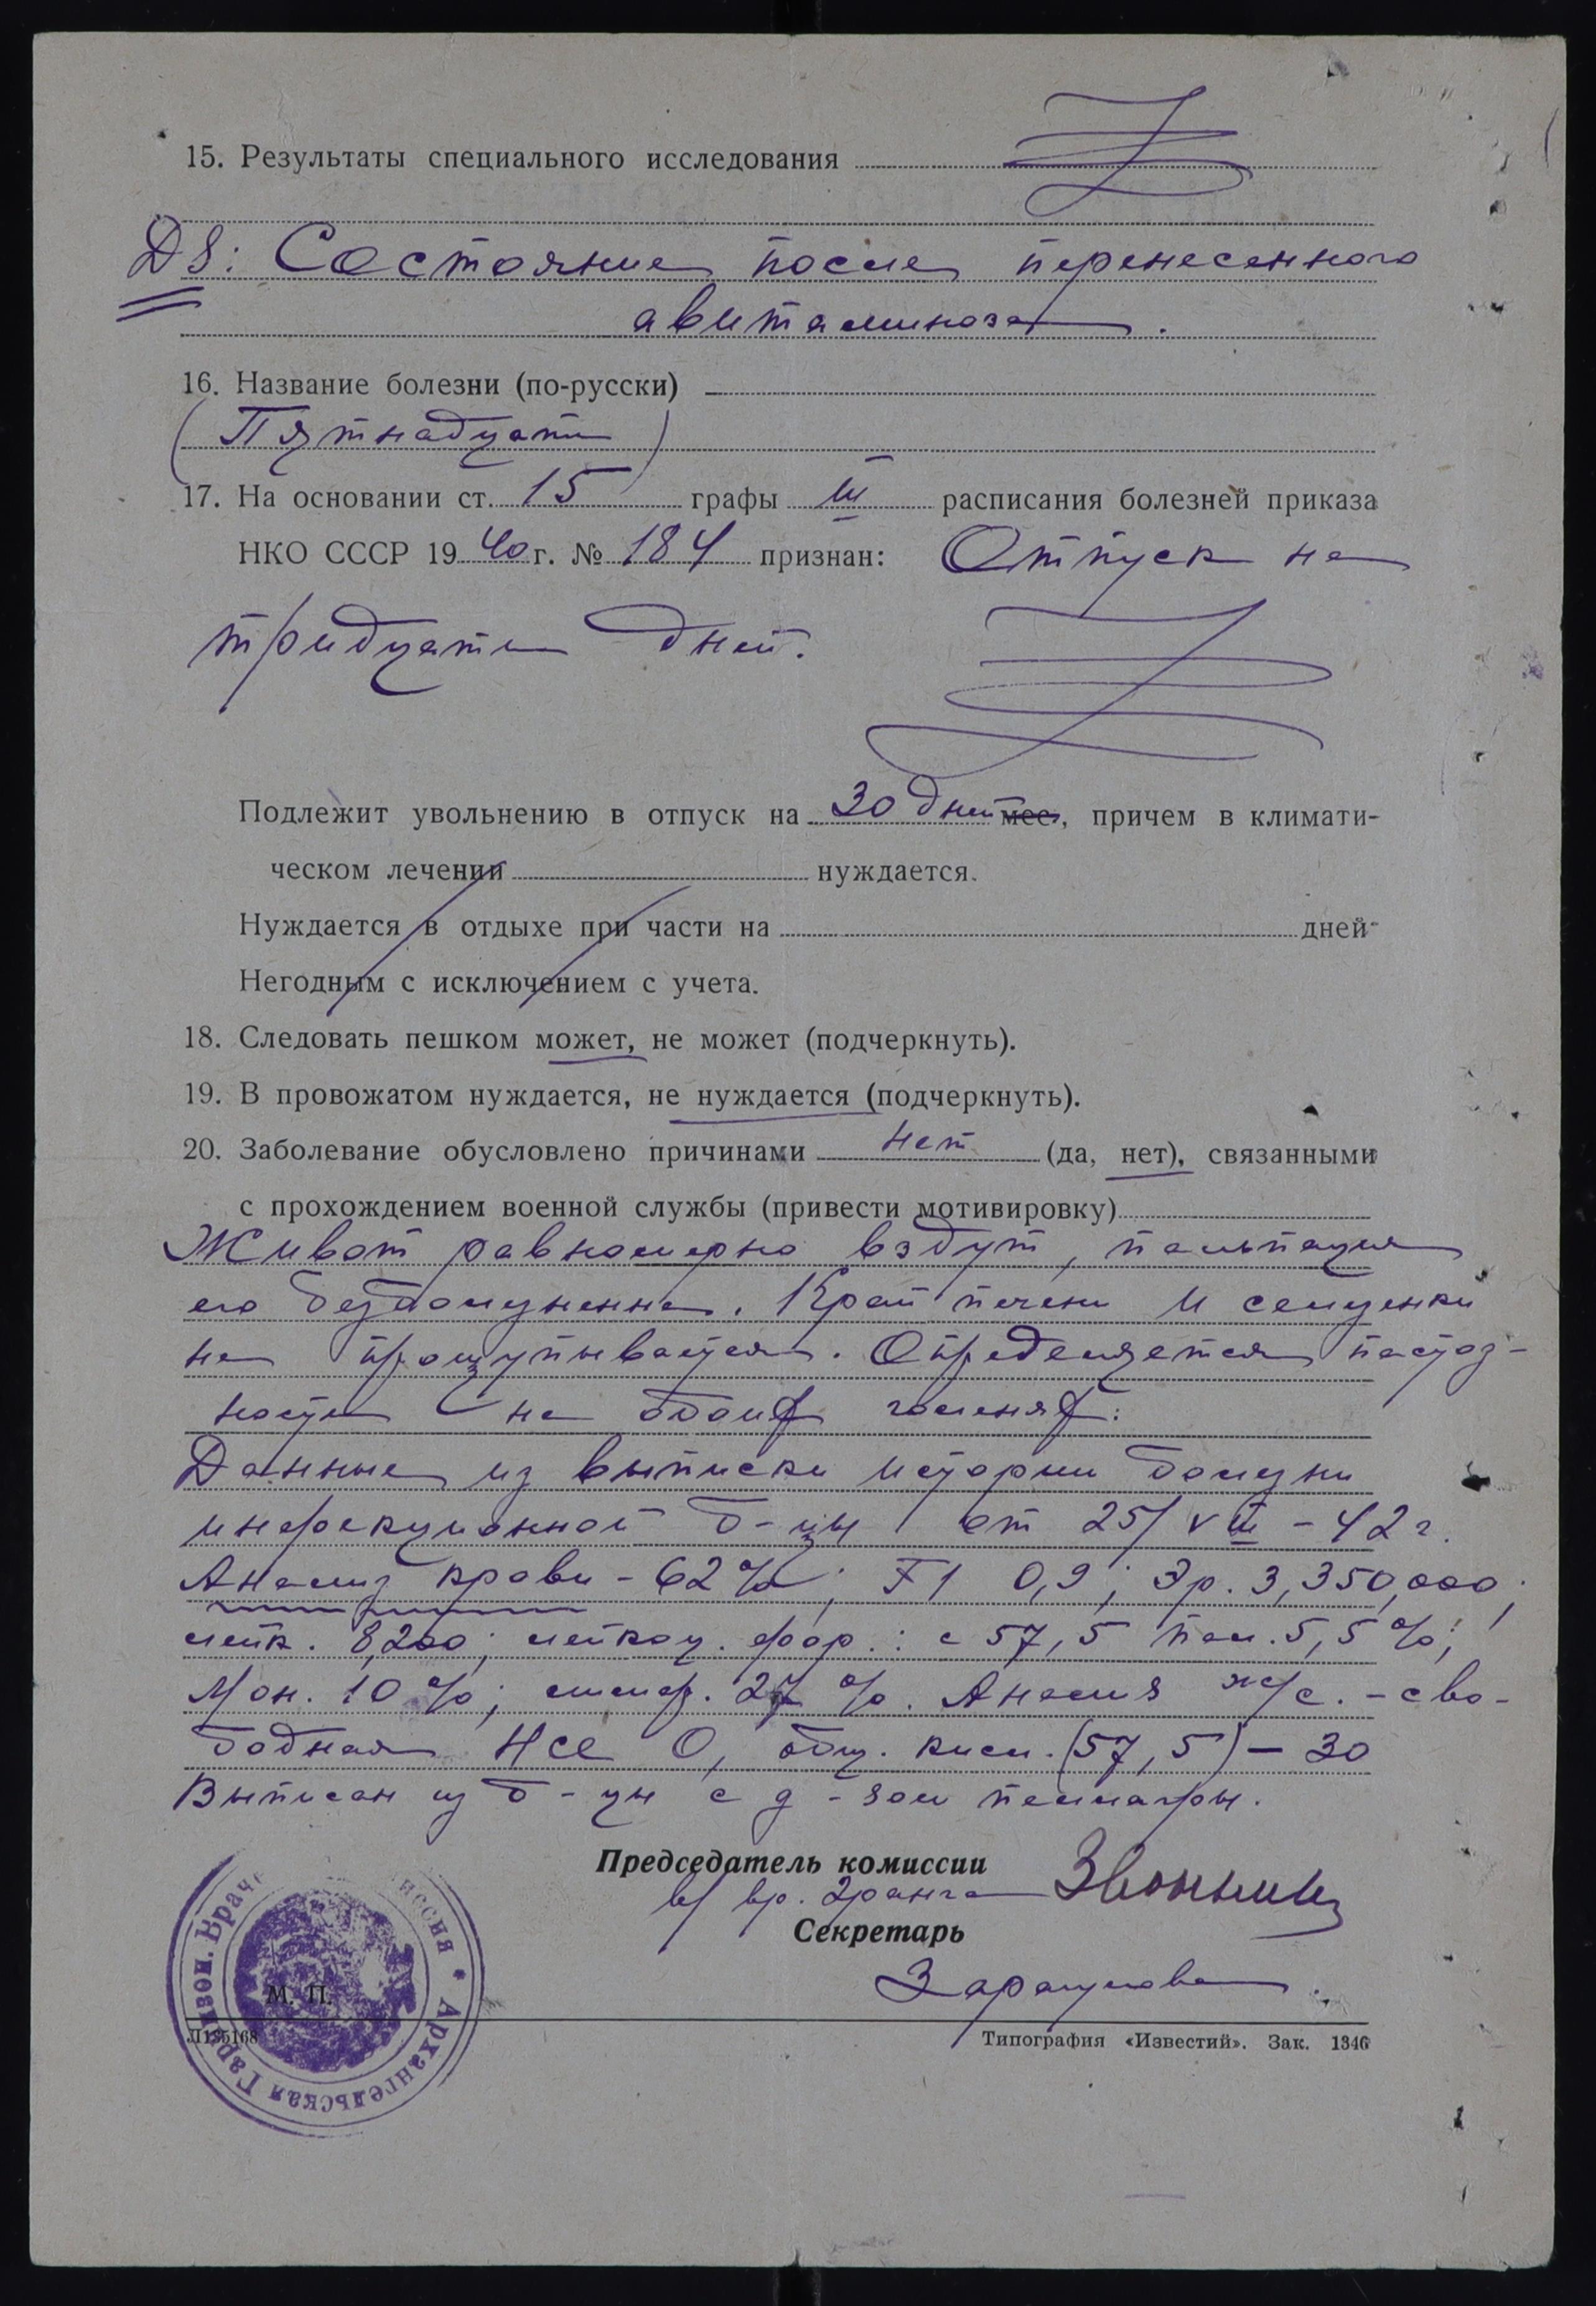 15. Результаты специального исследования
DS: Состояние после перенесенного
авитаминоза.
16. Название болезни (по-русски)
(Пятнадцати)
17. На основании ст. 15 графы III расписания болезней приказа
НКО СССР 1940 г. № 184 признан: Отпуск на
тридцати дней.
Подлежит увольнению в отпуск на 30 дней мес., причем в климати-
ческом лечении нуждается.
Нуждается в отдыхе при части на дней
Негодным с исключением с учета.
18. Следовать пешком может, не может (подчеркнуть).
19. В провожатом нуждается, не нуждается (подчеркнуть).
20. Заболевание обусловлено причинами нет (да, нет), связанными
с прохождением военной службы (привести мотивировку)
Живот равномерно вздут, пальпация
его безболезненна. Край печени и селезенки
не прощупывается. Определяется пастоз-
ность на обоих голенях.
Данные из выписки истории болезни
инфекционной б-цы от 25/VIII-42 г.
Анализ крови - 62%; F1 0,9; Эр. 3,350,000;
лейк. 8,200; лейкоц. фор.: с 57,5 пал. 5,5%;
Мон. 10%; лимф. 27%. Анализ ж/с. - сво-
бодная HCl 0, общ. кисл. (57,5) - 30
Выписан из б-цы с д-зом пеллагры.
Председатель комиссии
в/вр. 2 ранга
Секретарь
М. П.
Архангельская Гарнизон. Врач иссия *
Л135168
Типография «Известий». Зак. 1346